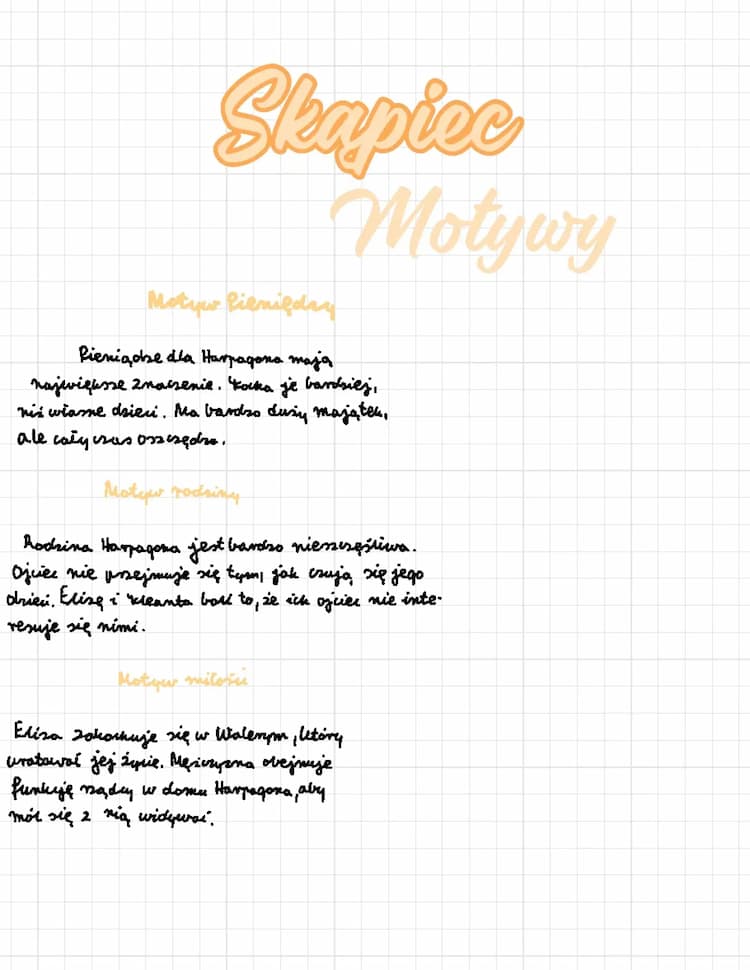 Skąpiec
Motywy
Motyw Pieniędzy
Pieniądze dla Harpagona mają
największe znaczenie. Kocha je bardziej,
niż własne dzieci. Ma bardzo duży majątek,
ale cały czas oszczędza.
Motyw rodziny
Rodzina Harpagona jest bardzo nieszczęśliwa.
Ojciec nie przejmuje się tym, jak czują się jego
dzieci. Elizę i Kleanta boli to, że ich ojciec nie inte-
resuje się nimi.
Motyw miłości
Eliza zakochuje się w Walerym, który
uratował jej życie. Mężczyzna obejmuje
funkcję rządcy w domu Harpagona, aby
mół się z nią widywać.